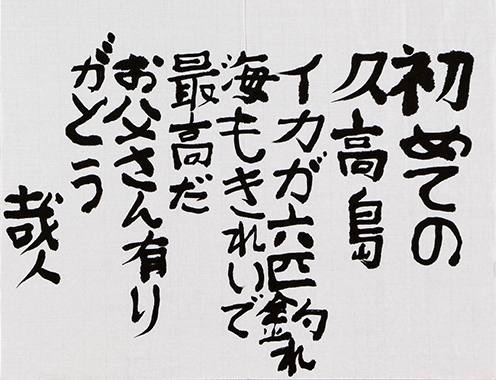 初めての
久高島
イカガ六匹釣れ
海もきれいで
最高だ
お父さん有り
がとう
哉人